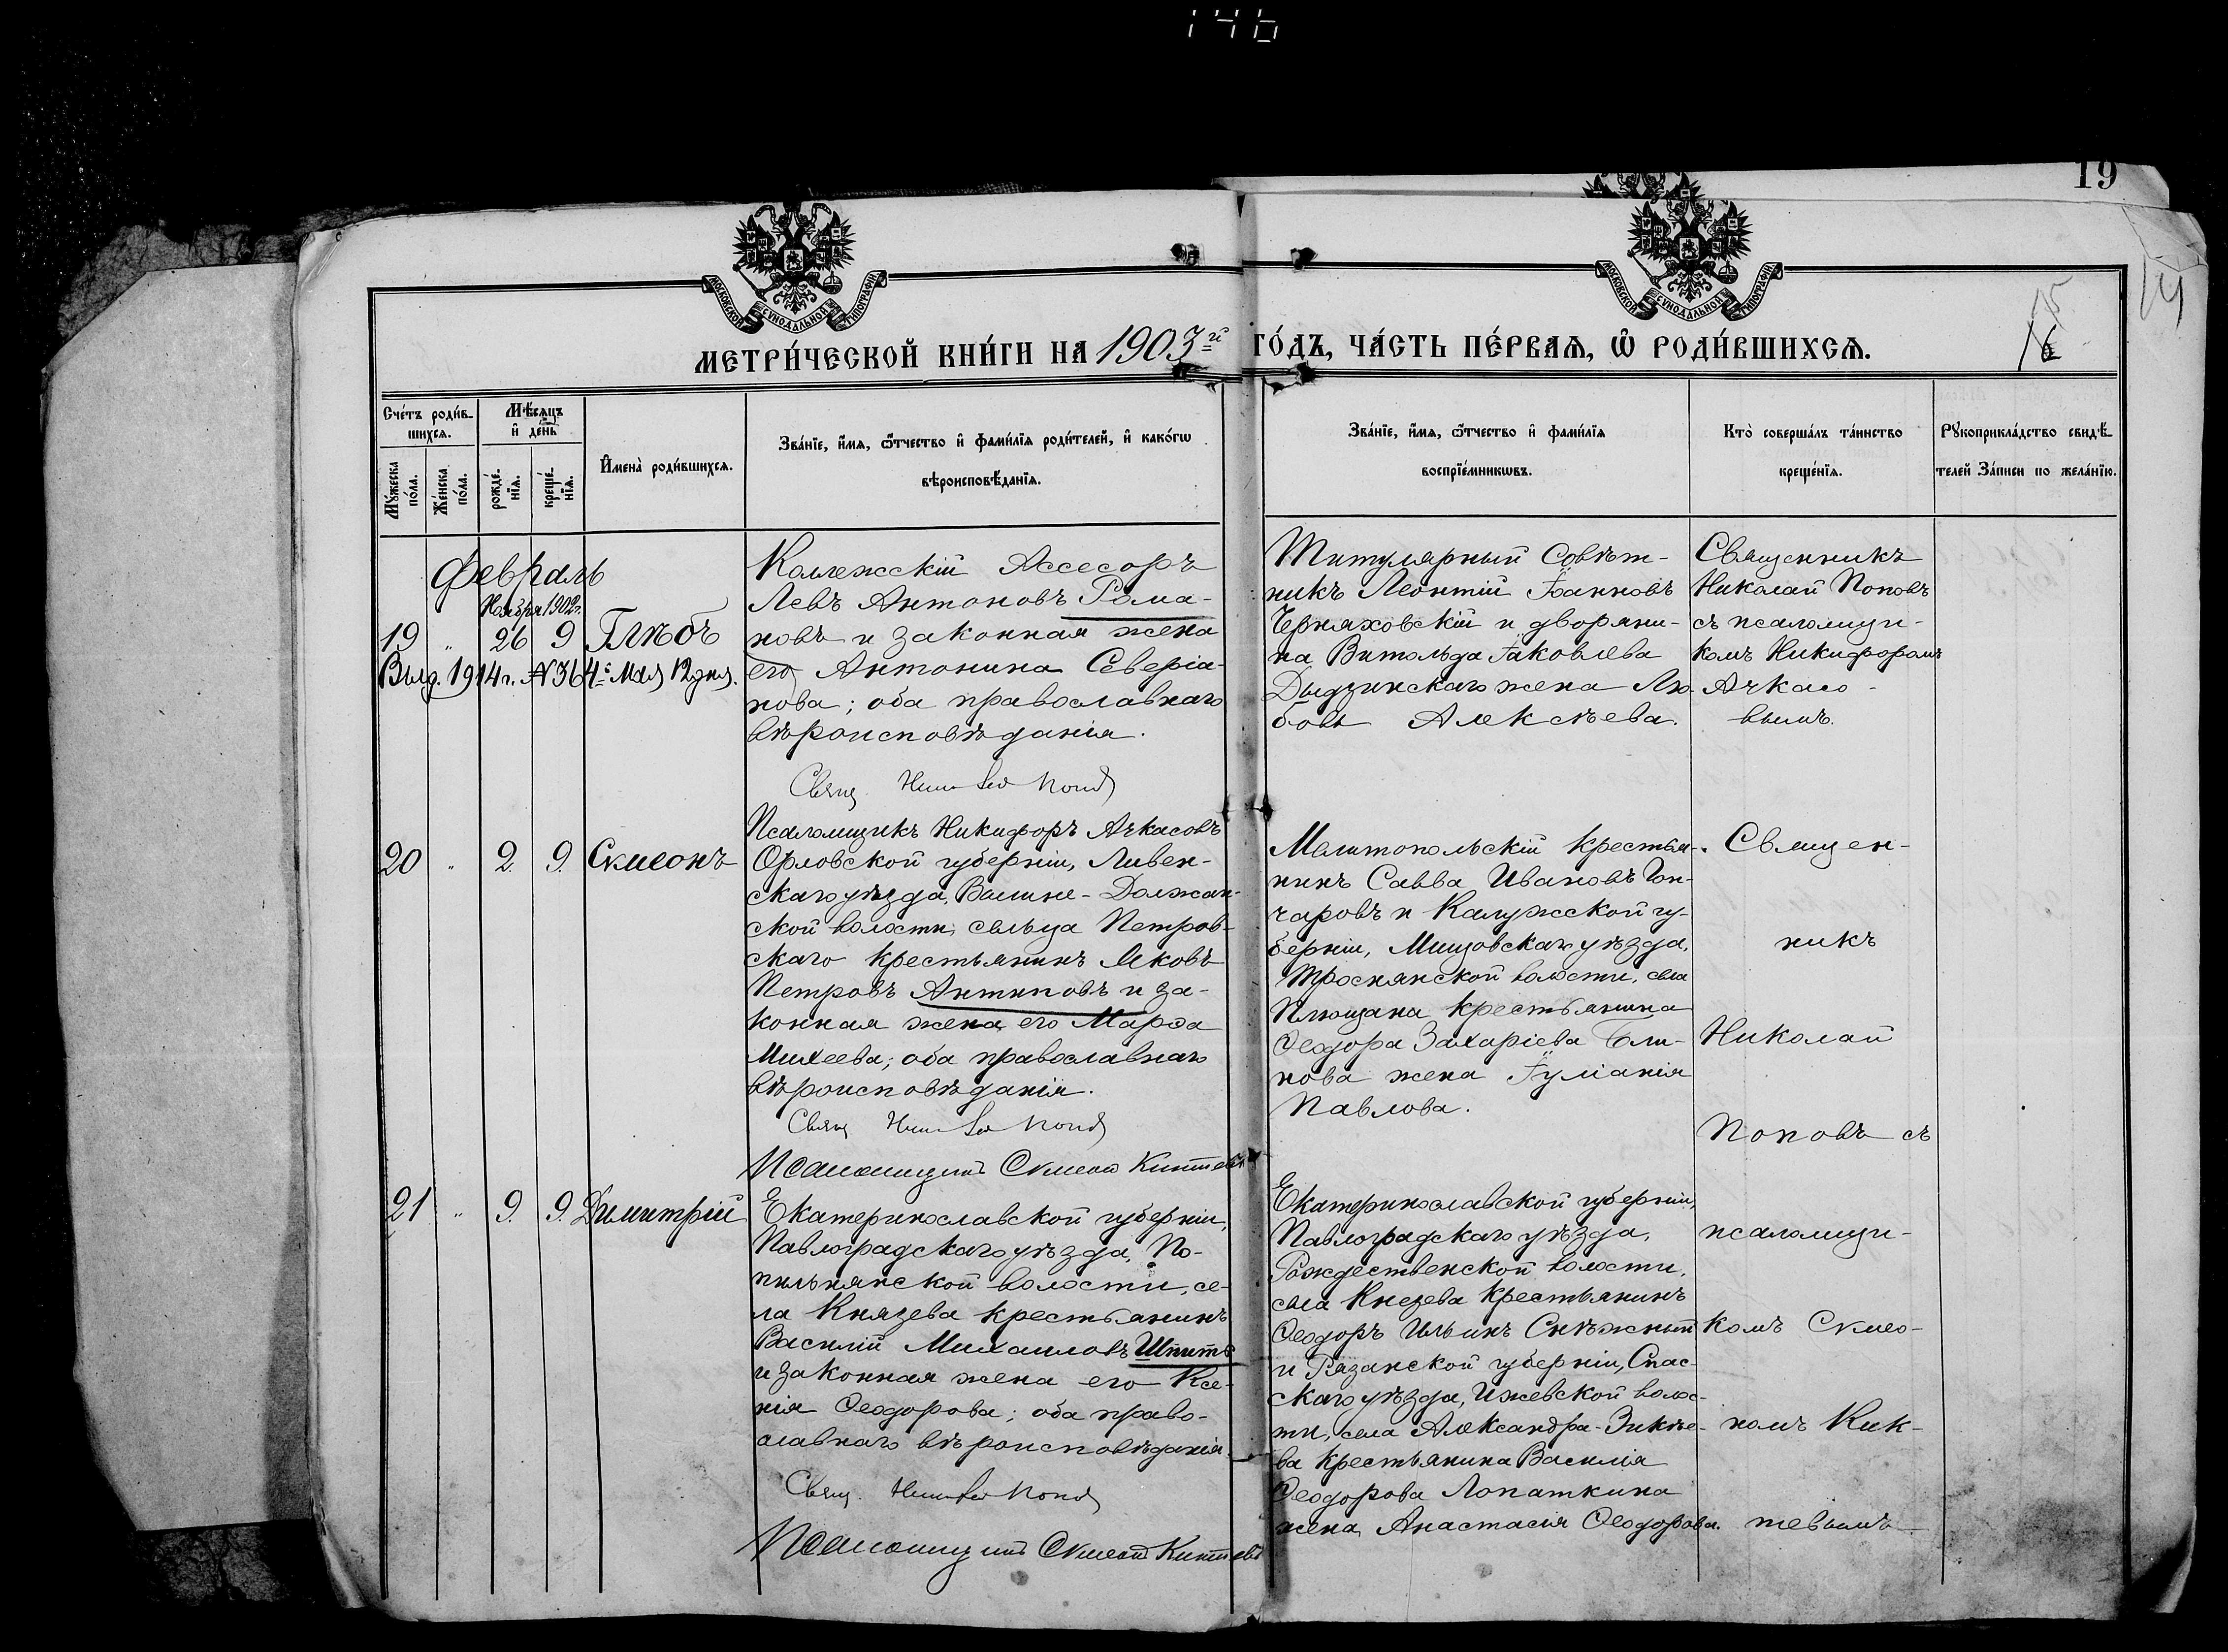 146
19
14
15
16
МОСКОВСКОЙ СѴНОДАЛЬНОЙ ТИПОГРАФІИ
МОСКОВСКОЙ СѴНОДАЛЬНОЙ ТИПОГРАФІИ
МЕТРИ́ЧЕСКОЙ КНИ́ГИ НА 1903й ГО́ДЪ, ЧА́СТЬ ПЕ́РВАѦ, Ѡ РОДИ́ВШИХСѦ.
Сче́тъ роди́в-
шихсѧ.
Мꙋжеска по́ла.
Же́нска по́ла.
Мѣ́сѧцъ
и҆ де́нь
рожде́-
нїѧ.
креще́-
нїѧ.
И҆мена̀ роди́вшихсѧ.
Зва́нїе, и҆́мѧ, ѻ҆́тчество и҆ фами́лїѧ роди́телей, и҆ како́гѡ
вѣроисповѣ́данїѧ.
Зва́нїе, и҆́мѧ, ѻ҆́тчество и҆ фами́лїѧ
воспрїе́мникѡвъ.
Кто̀ соверша́лъ та́инство
креще́нїѧ.
Рꙋкоприкла́дство свидѣ́-
телей за́писи по жела́нїю.
Февраль
Ноября 1902г.
19 " 26 9 Глѣбъ
Выд. 1914г. №364 4го Мая 12 дня.
Коллежскій Ассесоръ
Левъ Антоновъ Рома-
новъ и законная жена
его Антонина Северіа-
нова; оба православнаго
вѣроисповѣданія.
Свящ. Николай Поповъ
Титулярный Совѣт-
никъ Леонтій Іоанновъ
Черняховскій и дворяни-
на Витольда Іаковлева
Дыдзинскаго жена Лю-
бовь Алексѣева.
Священникъ
Николай Поповъ
съ псаломщи-
комъ Никифоромъ
Ачкасо-
вымъ.
Псаломщикъ Никифоръ Ачкасовъ
20 " 2 9 Сѵмеонъ
Орловской губерніи, Ливен-
скаго уѣзда, Вышне-Должан-
ской волости, сельца Петров-
скаго крестьянинъ Яковъ
Петровъ Антиповъ и за-
конная жена его Марѳа
Михеева; оба православнаго
вѣроисповѣданія.
Свящ Николай Поповъ
Псаломщикъ Сѵмеонъ Киктевъ
Мелитопольскій крестья-
нинъ Савва Ивановъ Гон-
чаровъ и Калужской гу-
берніи, Мещовскаго уѣзда,
Троснянской волости, села
Плющана крестьянина
Ѳеодора Захаріева Бли-
нова жена Іуліанія
Павлова.
Священ-
никъ
Николай
Поповъ съ
21 " 9 9 Димитрій
Екатеринославской губерніи,
Павлоградскаго уѣзда, По-
пильнянской волости, се-
ла Князева крестьянинъ
Василій Михаиловъ Шпить
и законная жена его Ксе-
нія Ѳеодорова; оба право-
славнаго вѣроисповѣданія.
Свящ. Николай Поповъ
Псаломщикъ Сѵмеонъ Киктевъ
Екатеринославской губерніи,
Павлоградскаго уѣзда,
Рождественской волости,
села Князева крестьянинъ
Ѳеодоръ Ильинъ Снѣжный
и Рязанской губерніи, Спас-
скаго уѣзда, Ижевской волос-
ти, села Александра-Зикѣе-
ва крестьянина Василія
Ѳеодорова Лопаткина
жена Анастасія Ѳеодорова.
псаломщи-
комъ Сѵмео-
номъ Кик-
тевымъ